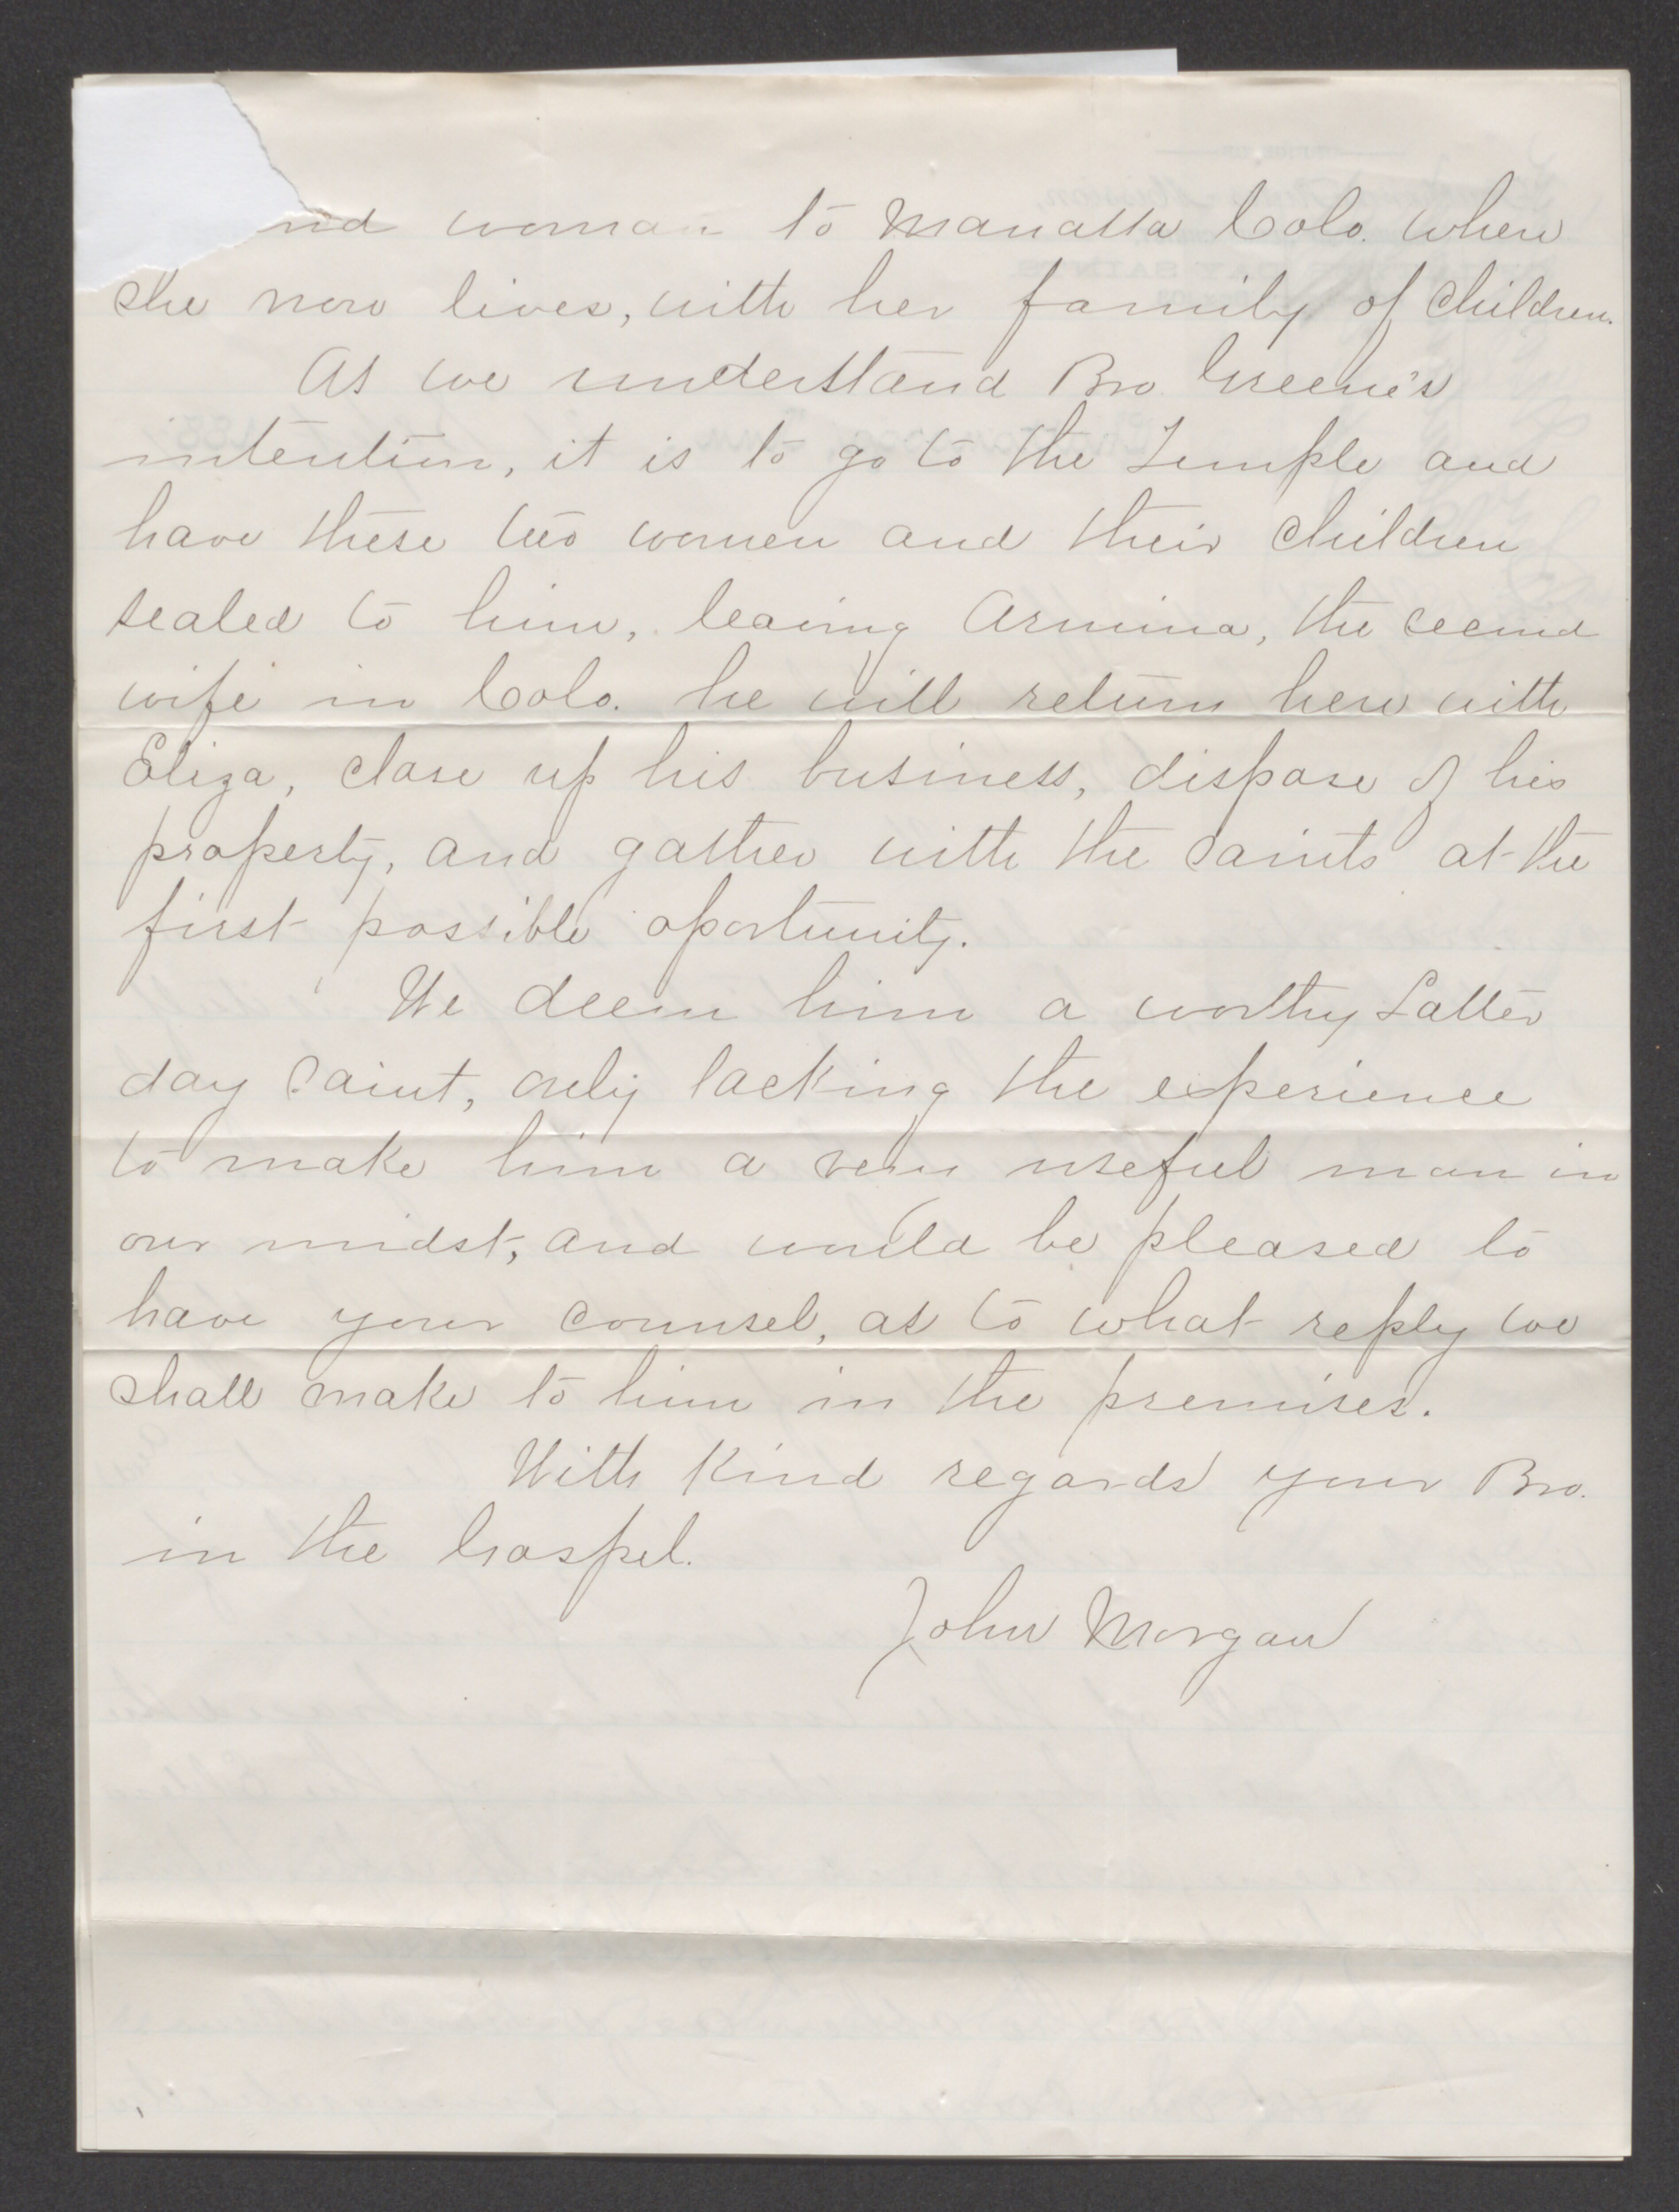 nd woman to Manassa Colo. where
she now lives, with her family of children.
As we understand Bro. Greene's
intention, it is to go to the Temple and
have these two women and their children
sealed to him, leaving Armina, the second
wife in Colo. he will return here with
Eliza, close up his business, dispose of his
property, and gather with the saints at the
first possible oportunity.
We deem him a worthy Latter
day saint, only lacking the experience
to make him a very useful man in
our midst, and would be pleased to
have your counsel, as to what reply we
shall make to him in the premises.
With Kind regards your Bro.
in the Gospel.
John Morgan